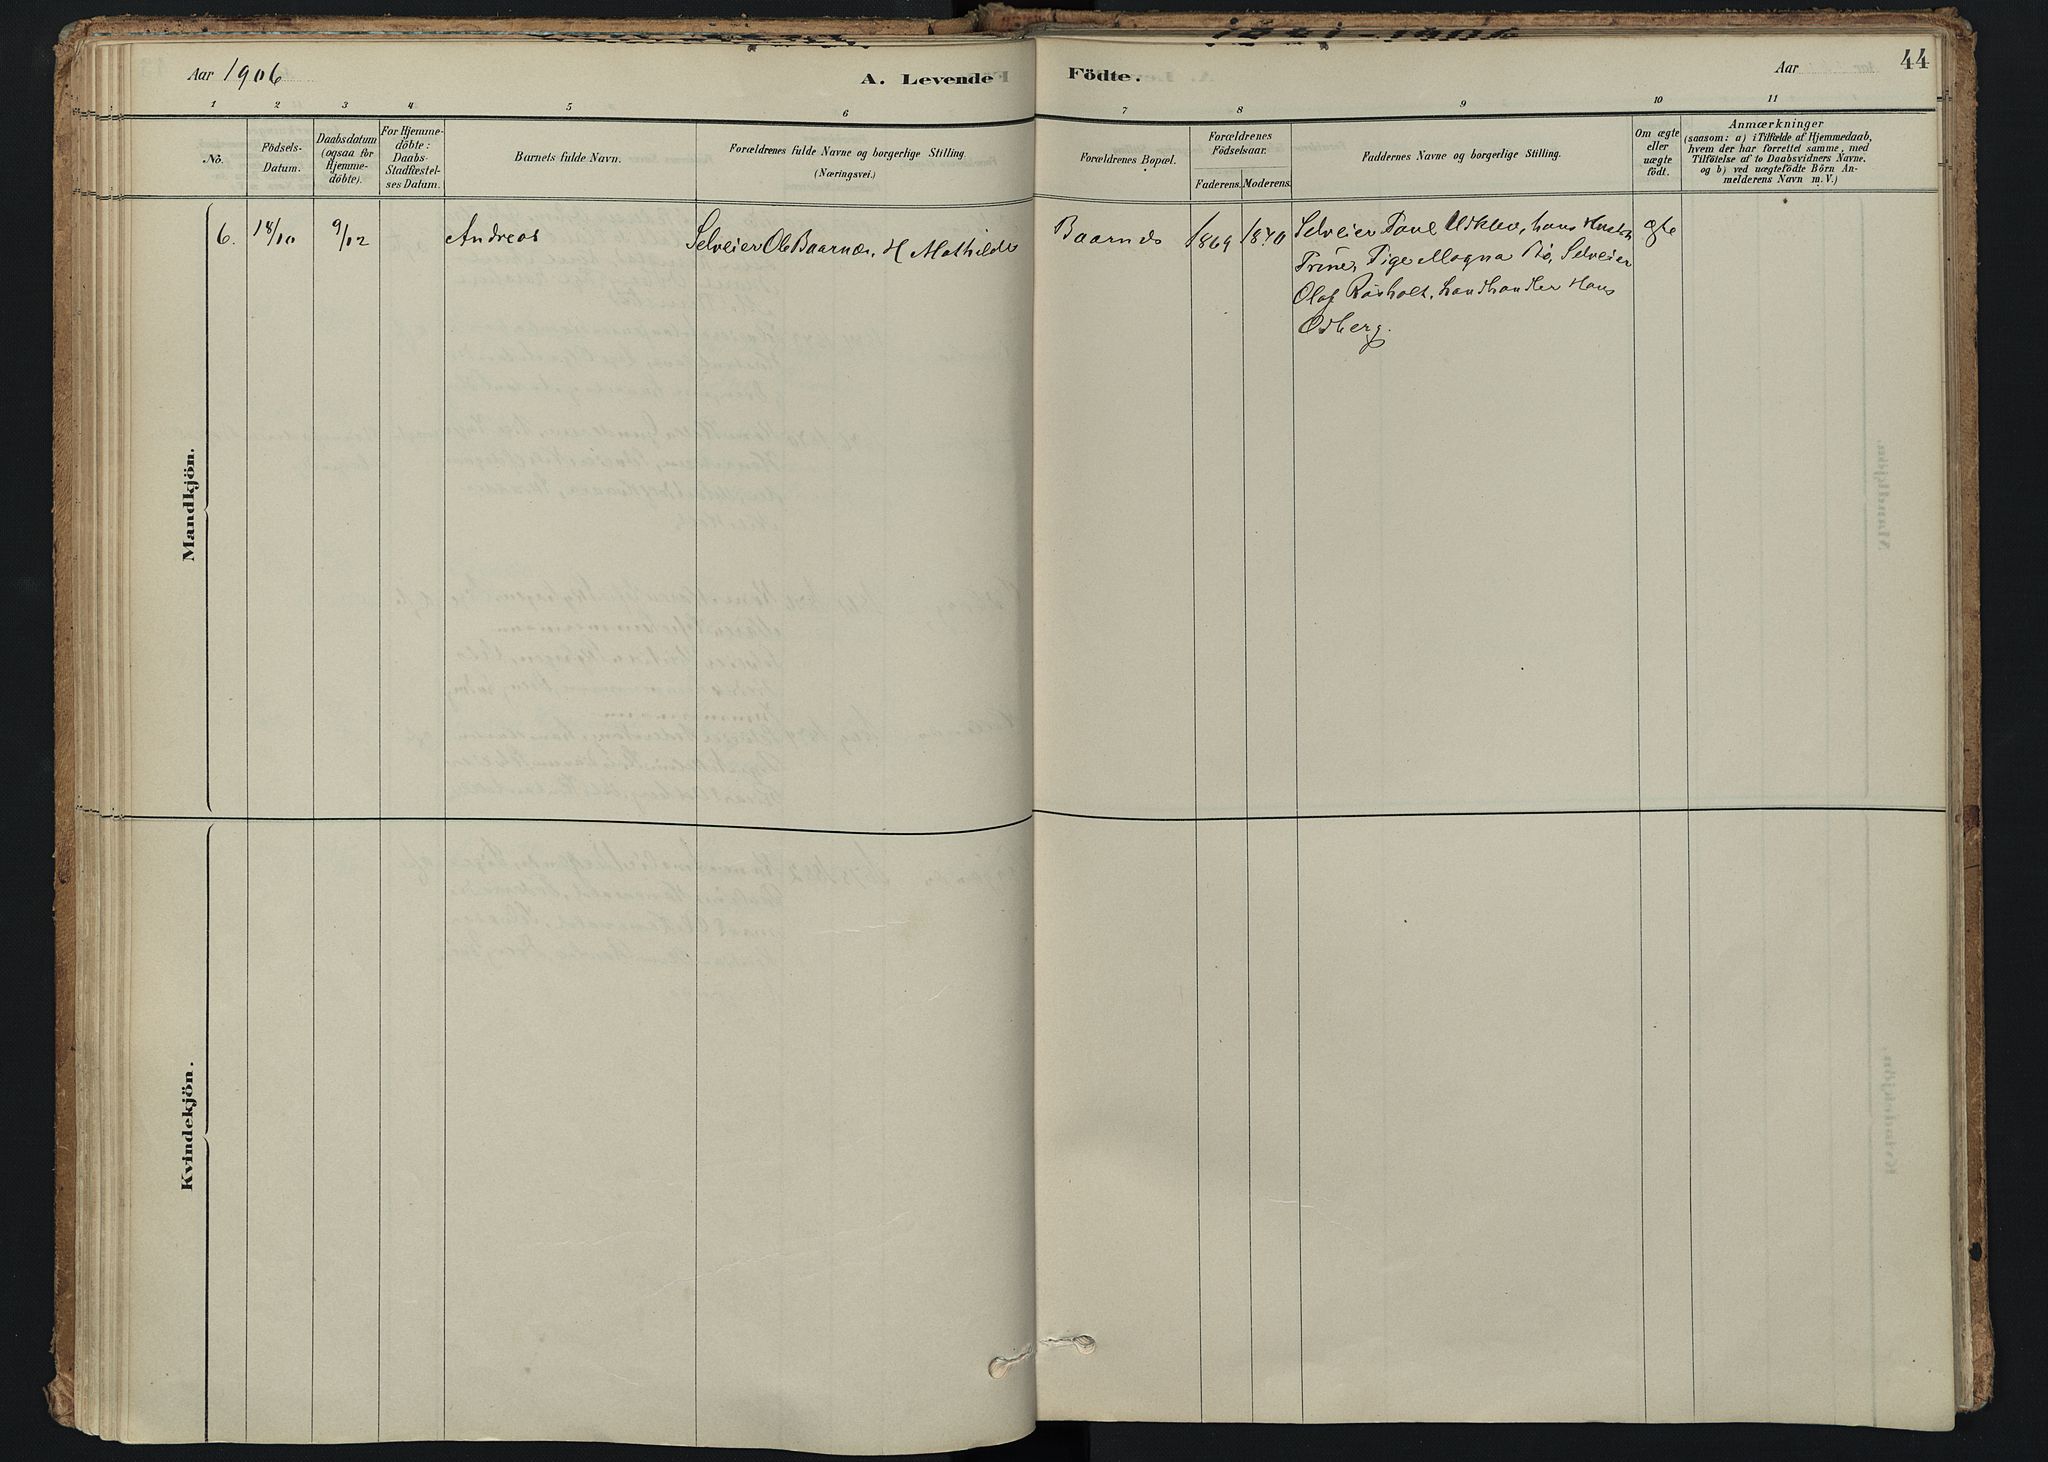 Aar 1906
A. Levende Födte.
Aar
44
1
2
3
4
5
6
7
8
9
10
11
No.
Födsels-
Datum.
Daabsdatum
(ogsaa for
Hjemme-
döbte).
For Hjemme-
döbte:
Daabs-
Stadfæstel-
ses Datum.
Barnets fulde Navn.
Forældrenes fulde Navne og borgerlige Stilling.
(Næringsvei.)
Forældrenes Bopæl.
Forældrenes
Födselsaar.
Faderens.
Moderens.
Faddernes Navne og borgerlige Stilling.
Om ægte
eller
uægte
födt.
Anmærkninger
(saasom: a) i Tilfælde af Hjemmedaab,
hvem der har forrettet samme, med
Tilföielse af to Daabsvidners Navne,
og b) ved uægtefödte Börn An-
melderens Navn m. V.)
Mandkjön.
6.
18/10
9/12
Andreas
Selveier Ole Baarnæs, H Mathilde
Baarnæs
1869
1870
Selveier Paul Uskleo, hans Hustru
Trine, Pige Magna Bø, Selveier
Olaf Røsholt, Landhandler Hans
Ødberg.
ægte
Kvindekjön.